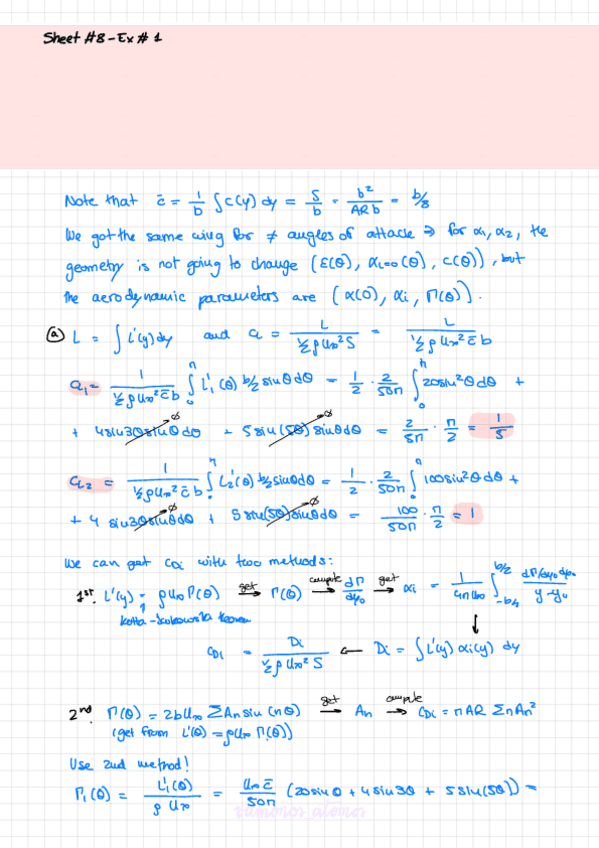 Sheet #8 - Ex # 1
Note that c̄ = 1/b ∫ c(y) dy = S/b = b²/(AR b) = b/8
We got the same wing for ≠ angles of attack ⇒ for α₁, α₂, the
geometry is not going to change (ε(θ), α_{L=0}(θ), c(θ)), but
the aerodynamic parameters are (α(θ), αi, Γ(θ)).
(a) L = ∫ L'(y) dy and cL = L/(½ρU∞²S) = L/(½ρU∞² c̄ b)
cL₁ = 1/(½ρU∞² c̄ b) ∫₀^π L'₁(θ) b/2 sinθ dθ = 1/2 · 2/(50π) ∫₀^π 20 sin²θ dθ +
+ 4 sin3θ sinθ dθ + 5 sin(5θ) sinθ dθ = 2/(5π) · π/2 = 1/5
cL₂ = 1/(½ρU∞² c̄ b) ∫₀^π L₂'(θ) b/2 sinθ dθ = 1/2 · 2/(50π) ∫₀^π 100 sin²θ dθ +
+ 4 sin3θ sinθ dθ + 5 sin(5θ) sinθ dθ = 100/(50π) · π/2 = 1
We can get cDi with two methods:
1st. L'(y) = ρU∞Γ(θ) get → Γ(θ) compute → dΓ/dy₀ get → αi = 1/(4πU∞) ∫_{-b/2}^{b/2} (dΓ/dy₀ dy₀)/(y-y₀)
kutta-Jukowska teorem
cDi = Di/(½ρU∞²S) ← Di = ∫ L'(y) αi(y) dy
2nd. Γ(θ) = 2bU∞ ΣAn sin(nθ) get → An compute → CDi = πAR ΣnAn²
(get from L'(θ) = ρU∞ Γ(θ))
Use 2nd method!
Γ₁(θ) = L'₁(θ)/(ρU∞) = U∞ c̄/(50π) (20 sinθ + 4 sin3θ + 5 sin(5θ)) =